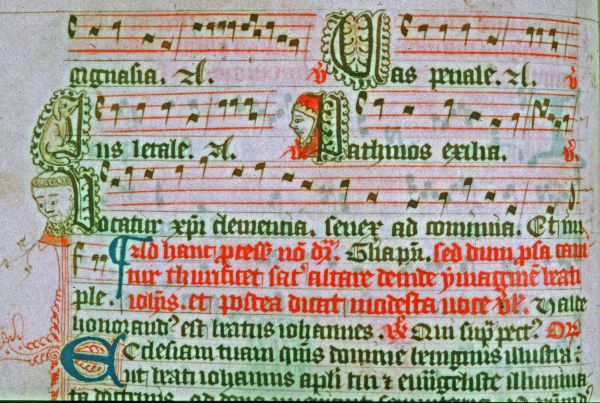 gignasia. A. V Vas penale. A. V
Ius letale. A. V Pathmos exilia. V
Vocatur xpi clementia. senex ad comnia. Et im
Ad hanc pcess' no dr. Gha pri. sed dum psa canta
tur thurificet sac' altare deinde ymagine beati
ple. iohis. et postea dicat modesta voce vs. Valde
honorand' est beatus iohannes. V Qui sup pect' Or
Ecclesiam tuam quis domine benignus illustra:
ut beati iohannis apli tui et euugeliste illumina
ta doctrinis ad dona